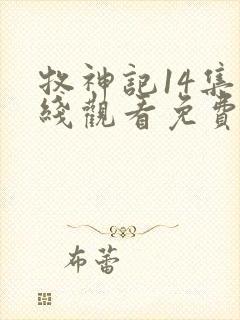 牧神記14集
綫觀看免費
布蕾